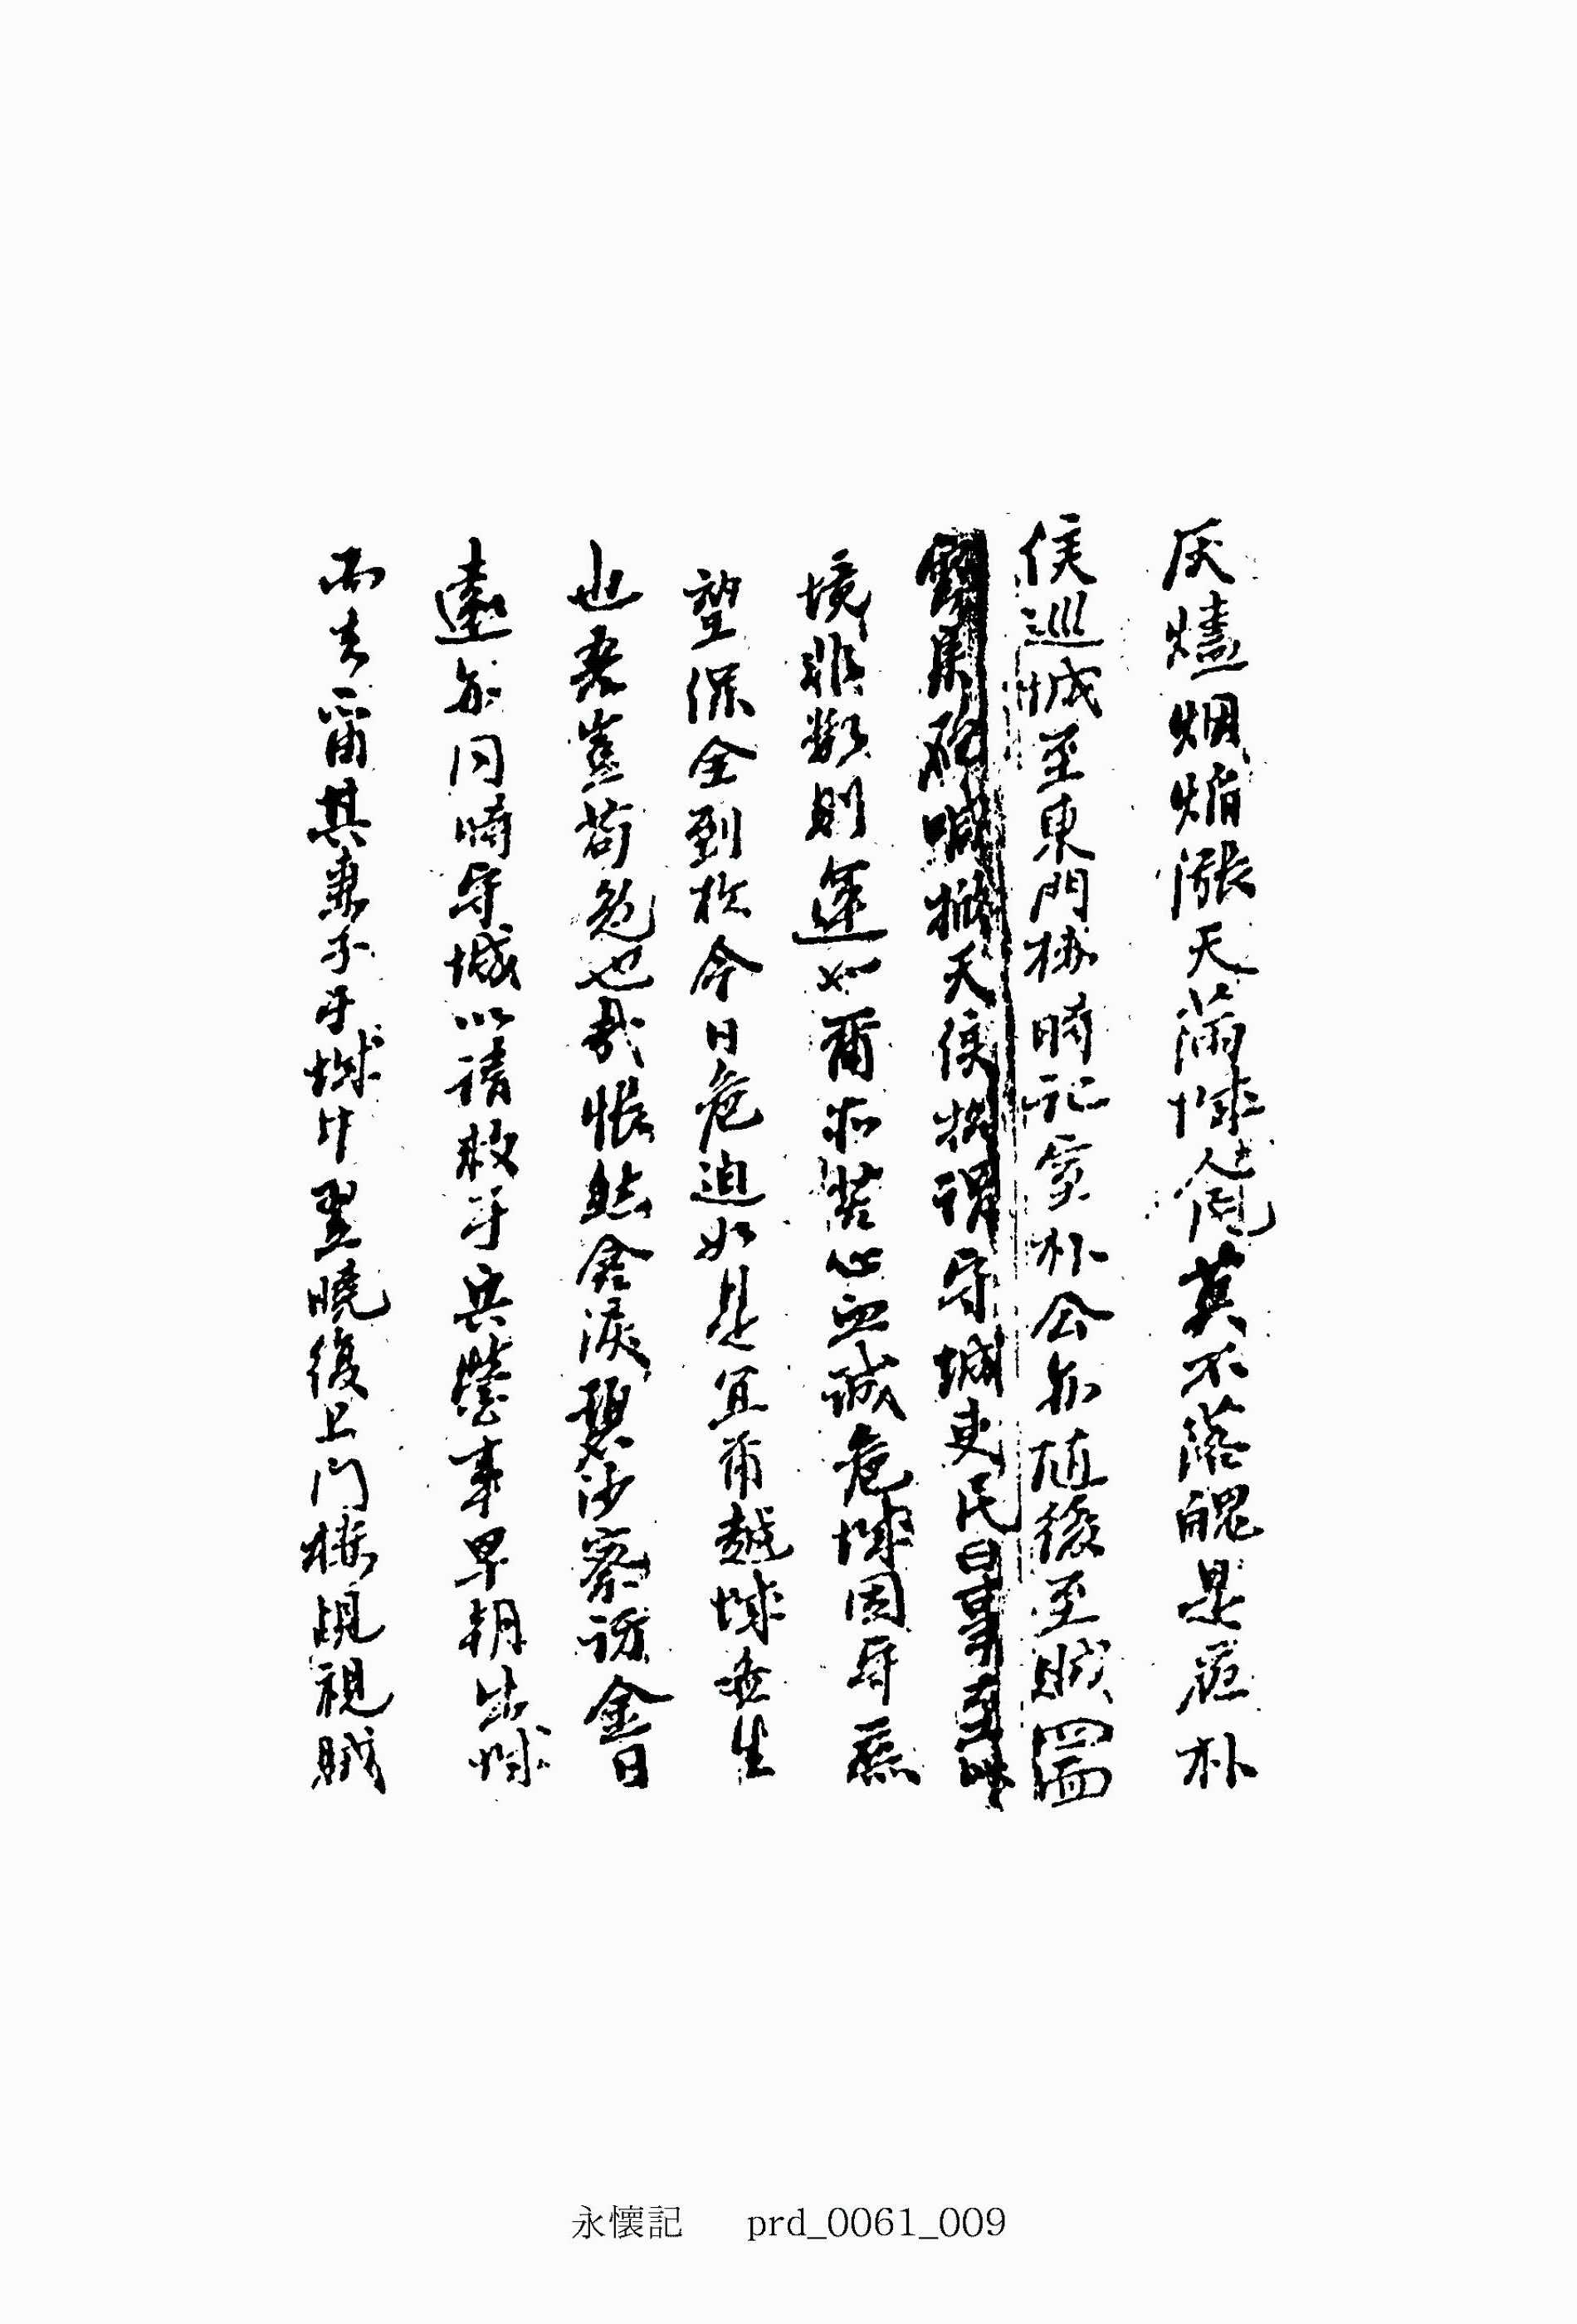 灰燼烟焰漲天滿城人莫不落魄是夜朴
侯巡城至東門樓時記室朴公亦随後至賊
砲喊掀天侯謂守城吏民曰事至
境非數則運如爾和苦心血誠危城固守庶
望保全到於今日危迫如是宜爾越城去生
也吾豈苟免也哉悵然含淚瑟沙察訪金曰
遠亦同時守城以請救于兵營事早朝出城
而去留其妻子于城中翌曉復上門樓覘視賊
永懷記 prd_0061_009